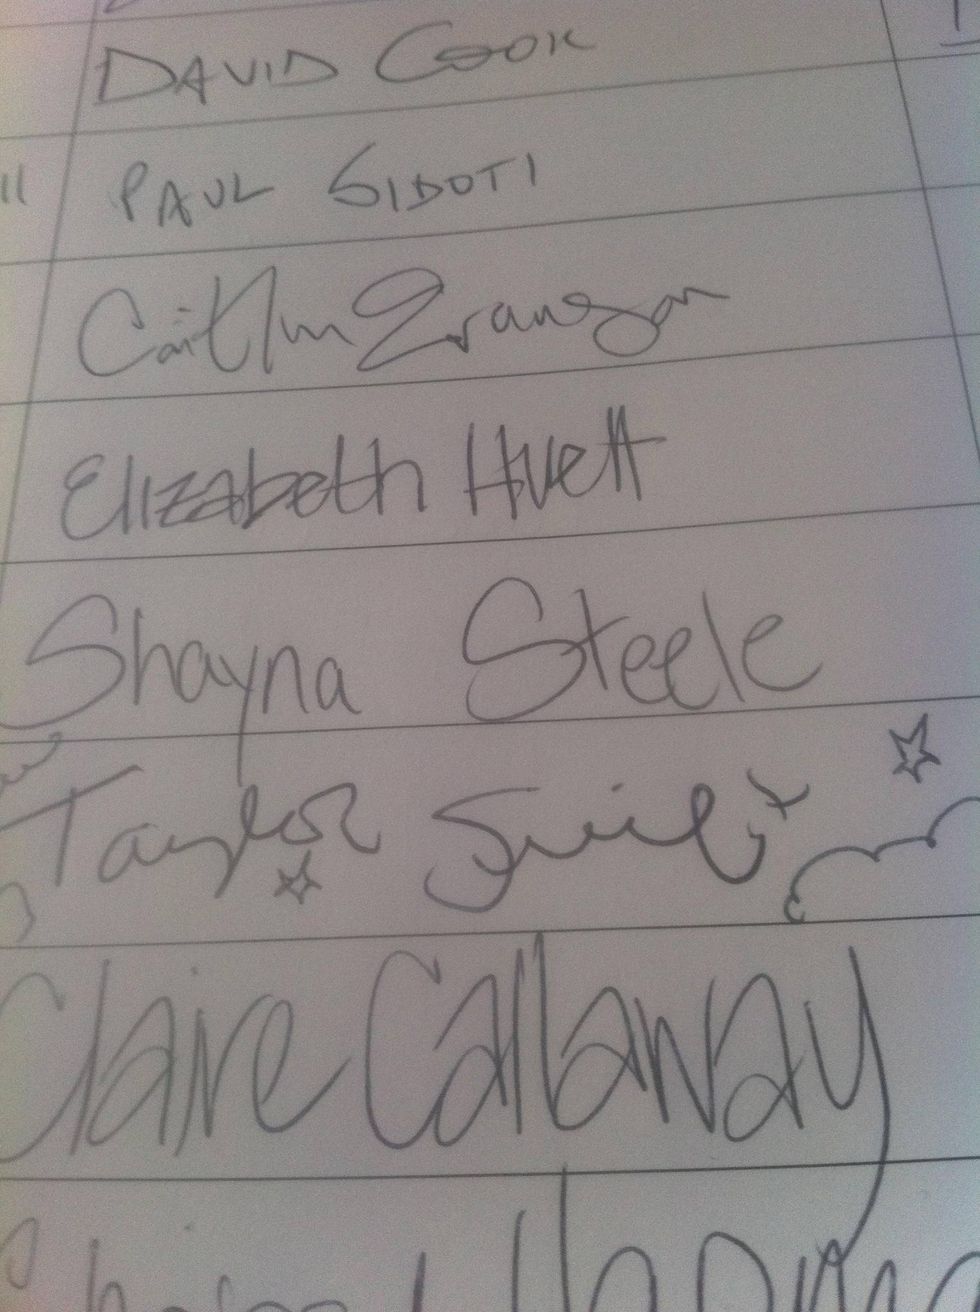 DAVID COOK
11 PAUL SIDOTI
Caitlin Evanson
Elizabeth Huett
Shayna Steele
Taylor Swift
Claire Callaway